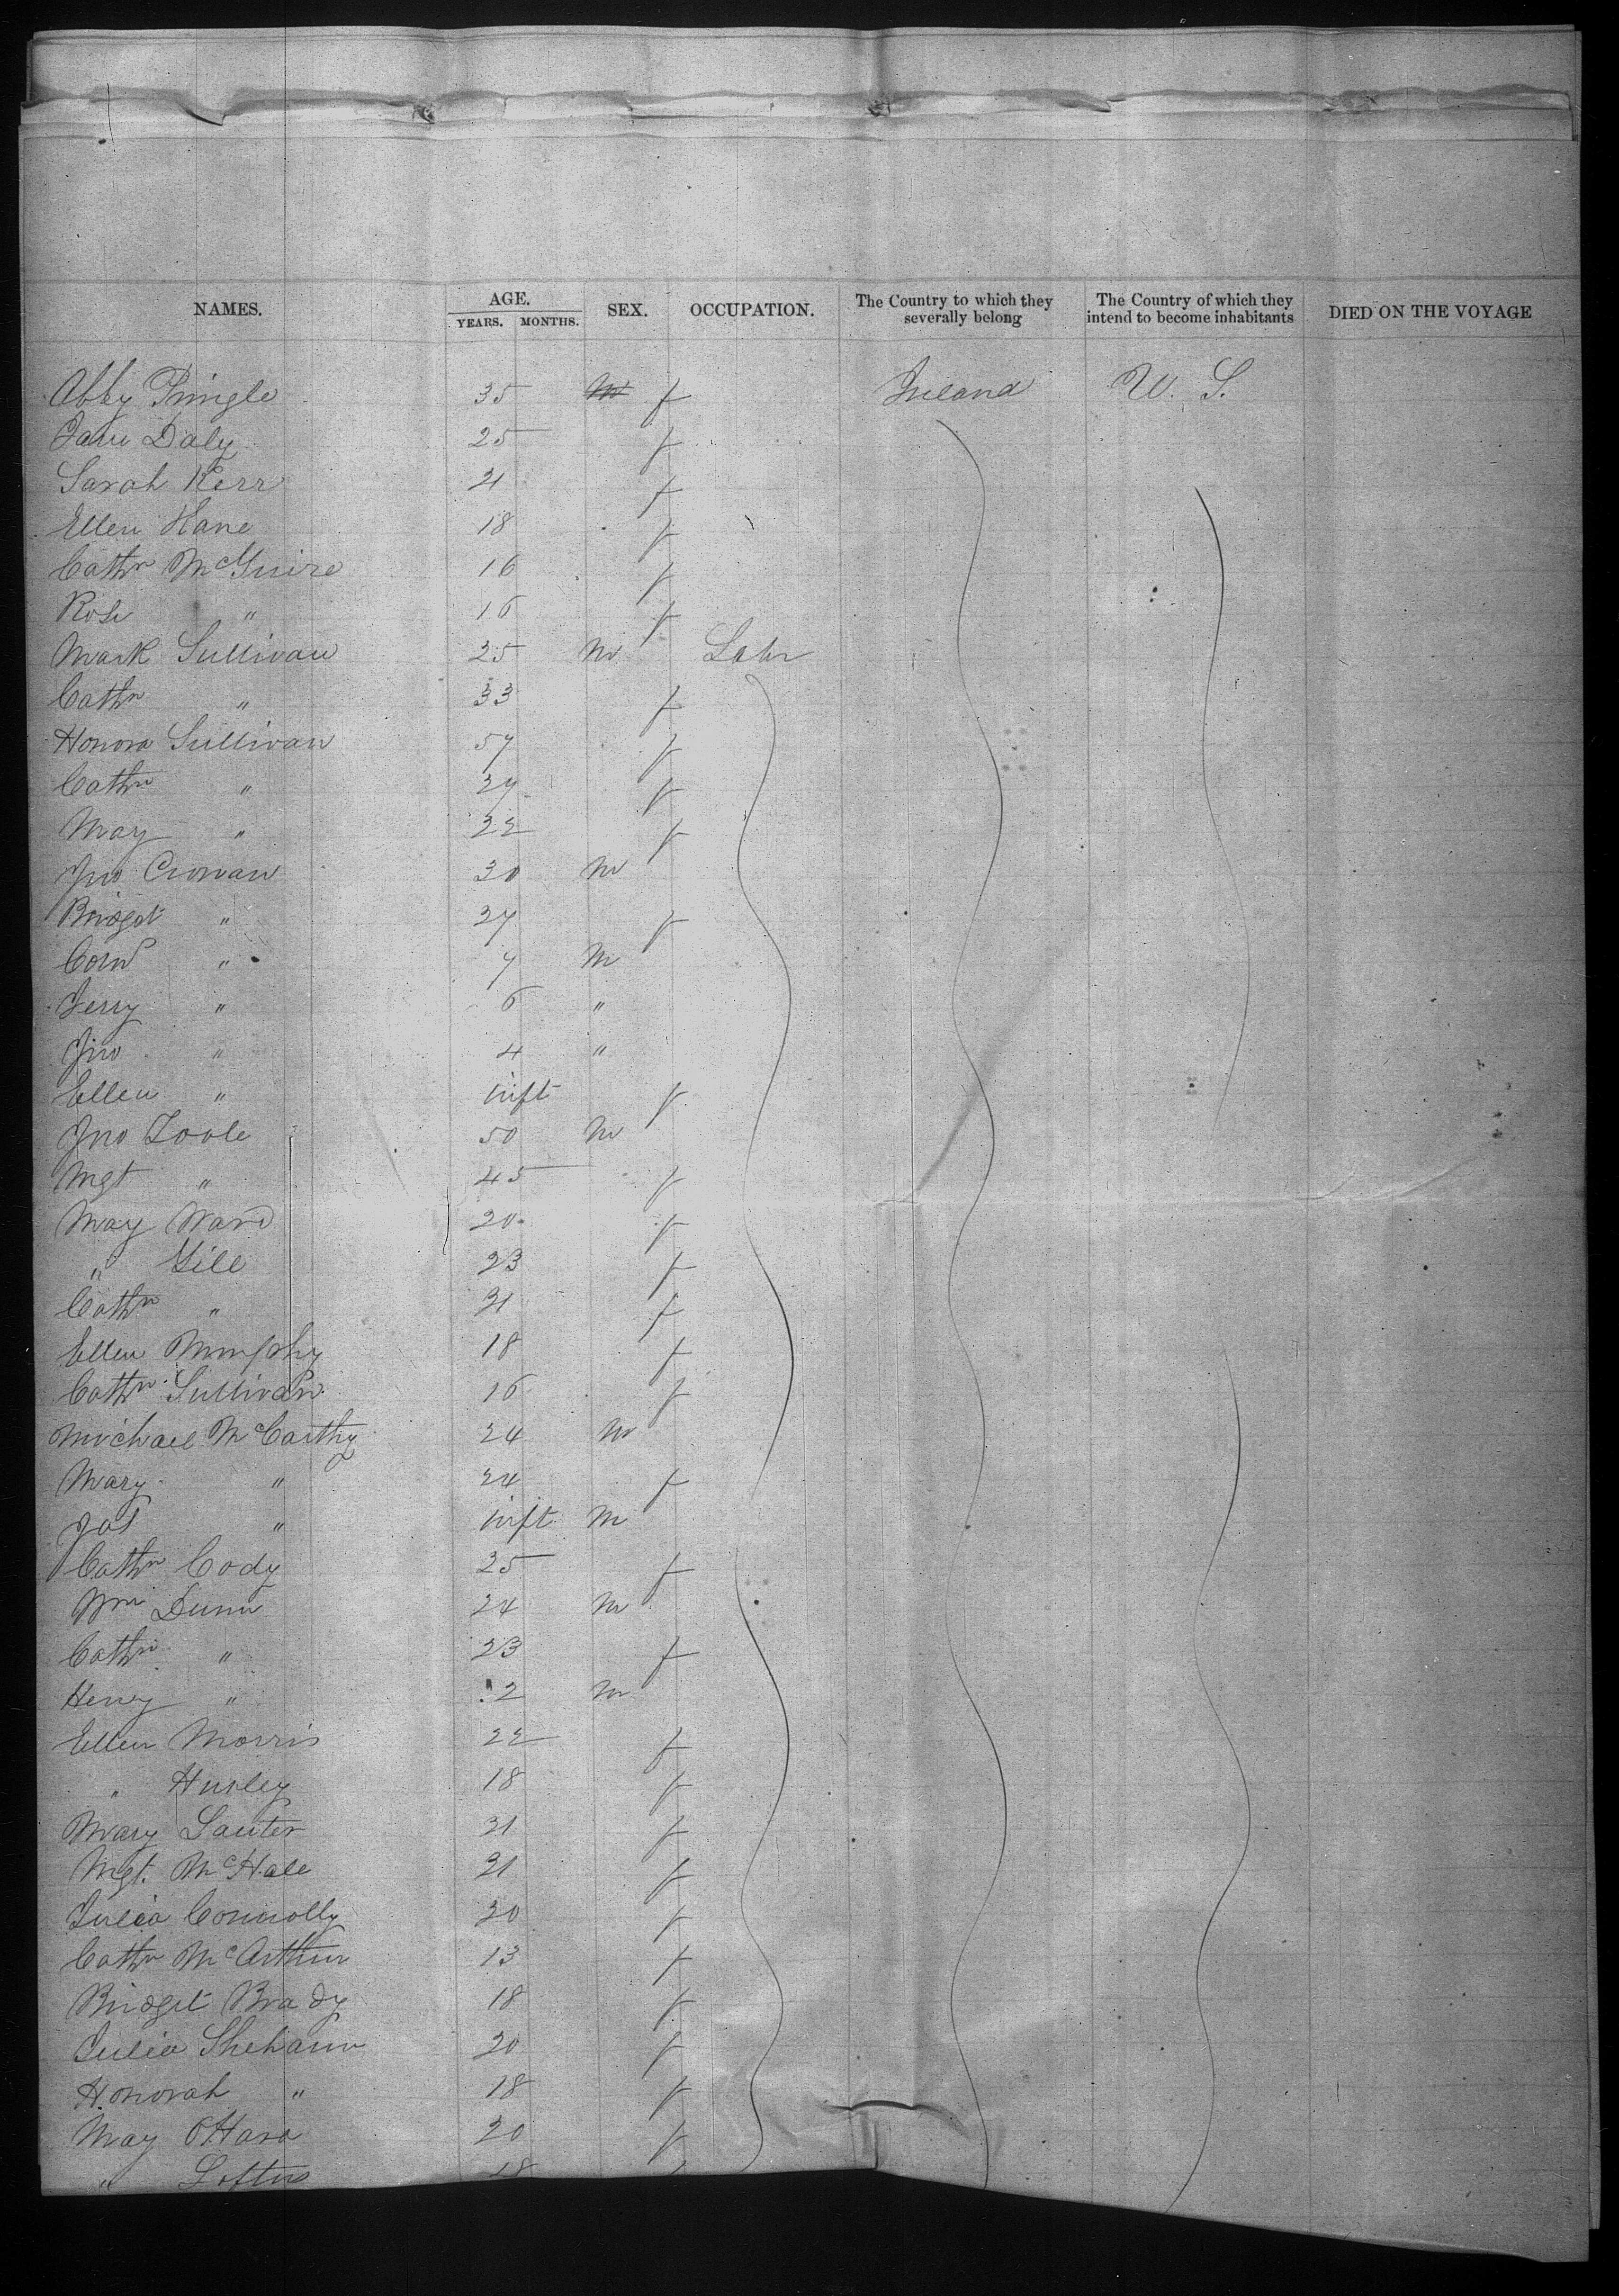 NAMES. AGE. YEARS. MONTHS. SEX. OCCUPATION. The Country to which they severally belong The Country of which they intend to become inhabitants DIED ON THE VOYAGE
Abby Pringle 35 M f Ireland U. S.
Jane Daly 25 f
Sarah Kerr 21 f
Ellen Kane 18 f
Cathn McGuire 16 f
Rose " 16 f
Mark Sullivan 25 M Labr
Cathn " 33 f
Honora Sullivan 57 f
Cathn " 27 f
May " 22 f
Jno Cronan 30 M
Bridget " 27 f
Corn " 7 M
Jerry " 6 "
Jno " 4 "
Ellen " inft f
Jno Toole 50 M
Mgt " 45 f
May Ward 20 f
" Gill 23 f
Cathn " 21 f
Ellen Murphy 18 f
Cathn Sullivan 16 f
Michael McCarthy 24 M
Mary " 24 f
Jas " inft M
Cathn Cody 25 f
Wm Dunn 24 M
Cathn " 23 f
Henry " 2 M
Ellen Morris 22 f
" Hurley 18 f
Mary Sauter 21 f
Mgt. McHale 21 f
Julia Connolly 20 f
Cathn McArthur 13 f
Bridget Brady 18 f
Julia Shehann 20 f
Honorah " 18 f
May OHara 20 f
" Loftus 18